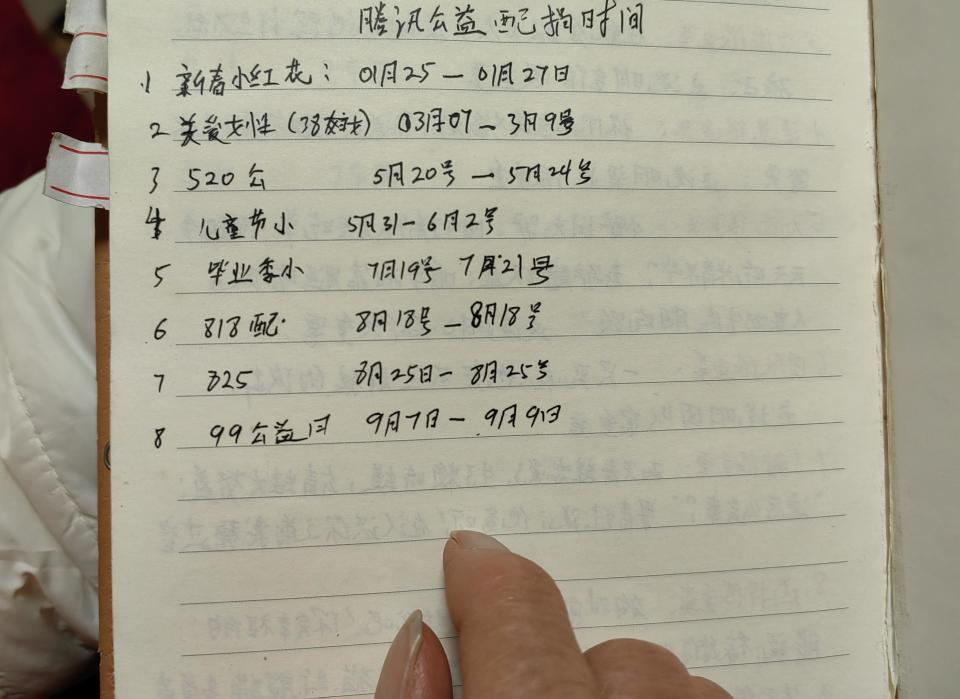 腾讯公益配捐时间
1 新春小红花： 01月25 — 01月27日
2 关爱女性（38女戏） 03月07 — 3月9号
3 520公 5月20号 — 5月24号
4 儿童节小 5月31 - 6月2号
5 毕业季小 7月19号 7月21号
6 818配 8月18号 — 8月18号
7 825 8月25日 - 8月25号
8 99公益日 9月7日 — 9月9日